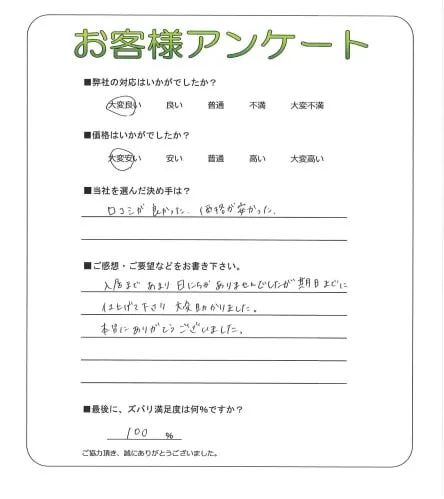 お客様アンケート
■弊社の対応はいかがでしたか？
大変良い 良い 普通 不満 大変不満
■価格はいかがでしたか？
大変安い 安い 普通 高い 大変高い
■当社を選んだ決め手は？
口コミが良かった、価格が安かった。
■ご感想・ご要望などをお書き下さい。
入居まであまり日にちがありませんでしたが期日までに
仕上げて下さり大変助かりました。
本当にありがとうございました。
■最後に、ズバリ満足度は何％ですか？
100 ％
ご協力頂き、誠にありがとうございました。